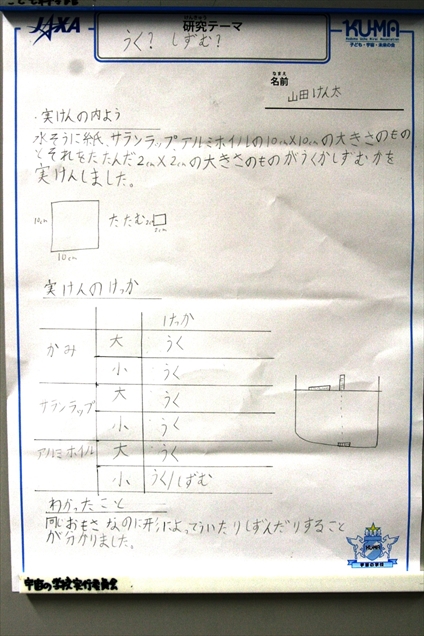 JAXA
けんきゅう
研究テーマ
うく? しずむ?
KU-MA
子ども・宇宙・未来の会
なまえ
名前
山田けん太
・実けんの内よう
水そうに紙、サランラップ、アルミホイルの10cm×10cmの大きさのもの
とそれをたたんだ2cm×2cmの大きさのものがうくかしずむかを
実けんしました。
10cm
たたむ
2cm
2cm
10cm
実けんのけっか
けっか
かみ 大 うく
小 うく
サランラップ 大 うく
小 うく
アルミホイル 大 うく
小 うく/しずむ
わかったこと
同じおもさなのに形によってういたりしずんだりすること
が分かりました。
KU-MA
宇宙の学校
宇宙の学校実行委員会